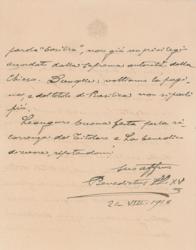 parola "Basilica", non già un privilegi
accordato dalla suprema autorità della
Chiesa. Dunque: voltiamo la pagi
na, e del titolo di Basilica non si parli
più.
Le auguro buona festa per la ri
correnza del Titolare e La benedico
di cuore, ripetendomi
suo affmo
Benedictus PP. XV
22 VIII. 1918